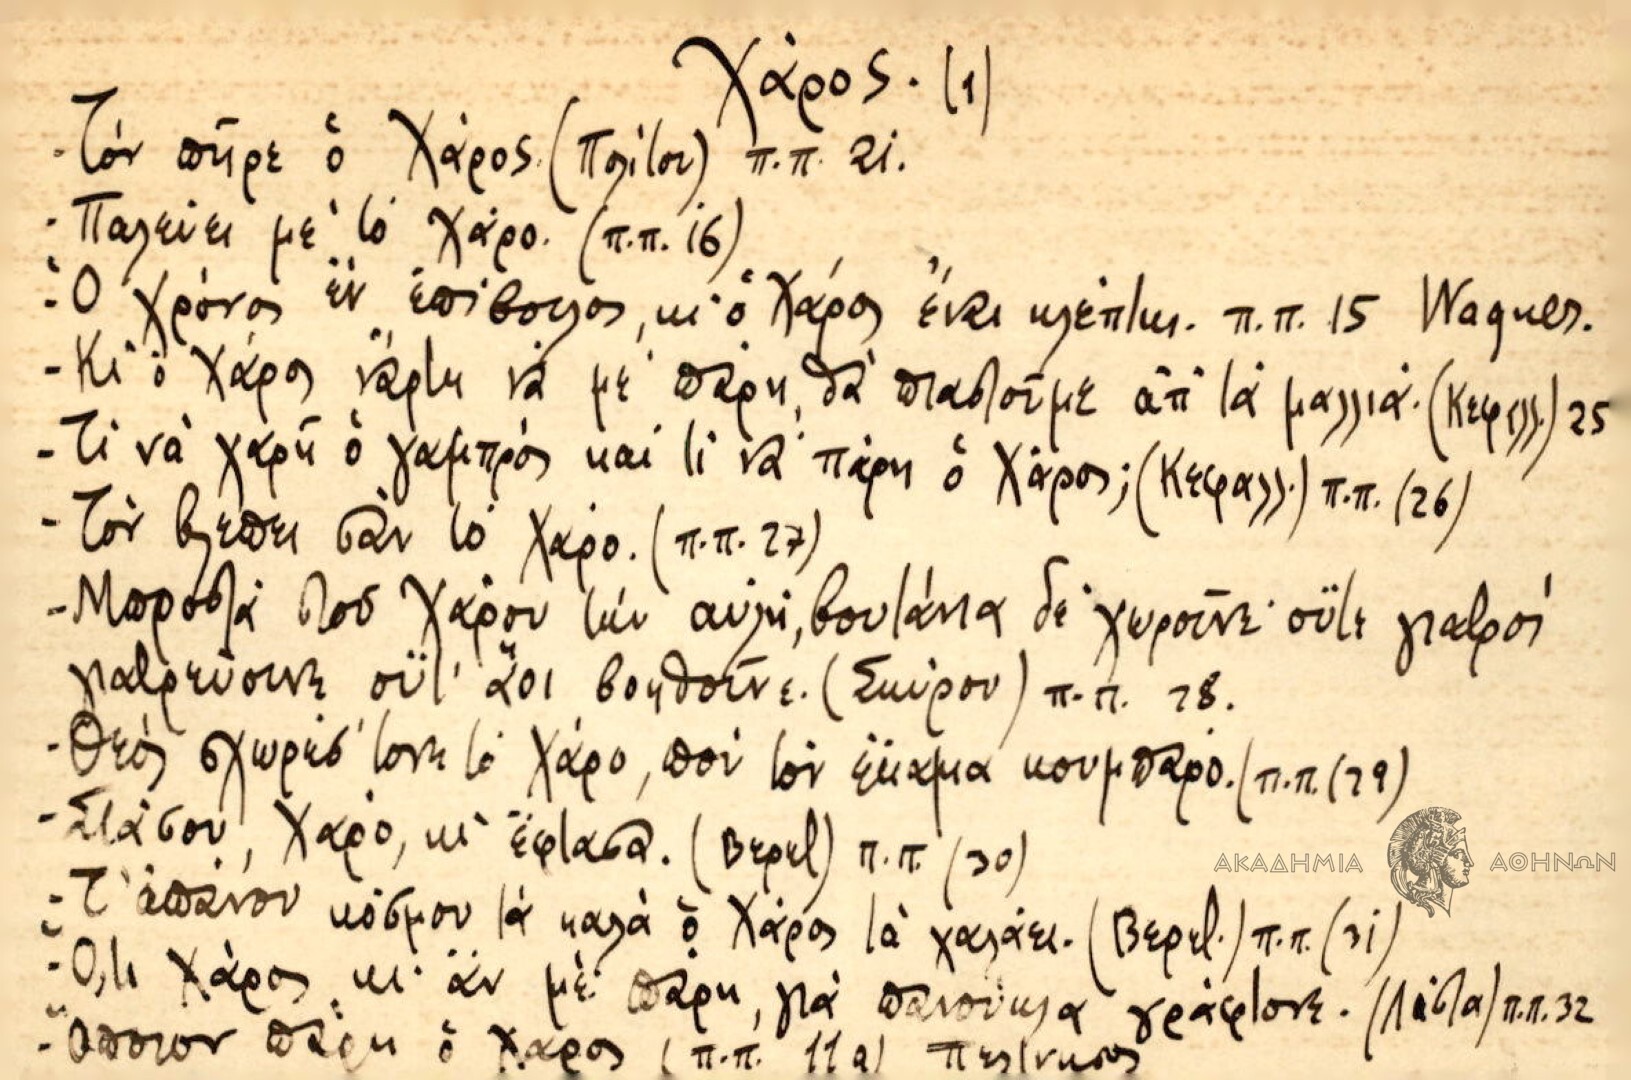 Χάρος. (1)
- Τόν πῆρε ὁ Χάρος. (Πολίτου) π.π. 21.
- Παλεύει μέ τό Χάρο. (π.π. 16)
- Ὁ χρόνος ἔν ἐπίβουλος, κι' ὁ Χάρος ἔναι κλέπτης. π.π. 15 Wagner.
- Κι' ὁ Χάρος νἄρτη νά μέ πάρη, θά πιαστοῦμε ἀπ' τά μαλλιά. (Κεφαλλ.) 25
- Τί νά χαρῆ ὁ γαμπρός καί τί νά πάρη ὁ Χάρος; (Κεφαλλ.) π.π. (26)
- Τόν βλέπει σάν τό Χάρο. (π.π. 27)
- Μπροστά στοῦ Χάρου τήν αὐλή, βουτάνια δέ χωροῦνε οὔτε γιατροί
γιατρεύουνε οὔτ' ἅγοι βοηθοῦνε. (Σκύρου) π.π. 28.
- Θεός σχωρέσ' τονε τό Χάρο, πού τόν ἔκαμα κουμπάρο. (π.π. (29)
- Στάσου, Χάρο, κι' ἔφτασα. (Βερετ) π.π (30)
- Τ' ἀπάνου κόσμου τά καλά ὁ Χάρος τά χαλάει. (Βερετ.) π.π. (31)
- Ὅ,τι Χάρος κι' ἄν μέ πάρη, γιά πανούκλα γράφτονε. (Λάστα) π.π. 32
- Ὅποιον πάρη ὁ Χάρος (π.π. 11α)
ΑΚΑΔΗΜΙΑ ΑΘΗΝΩΝ